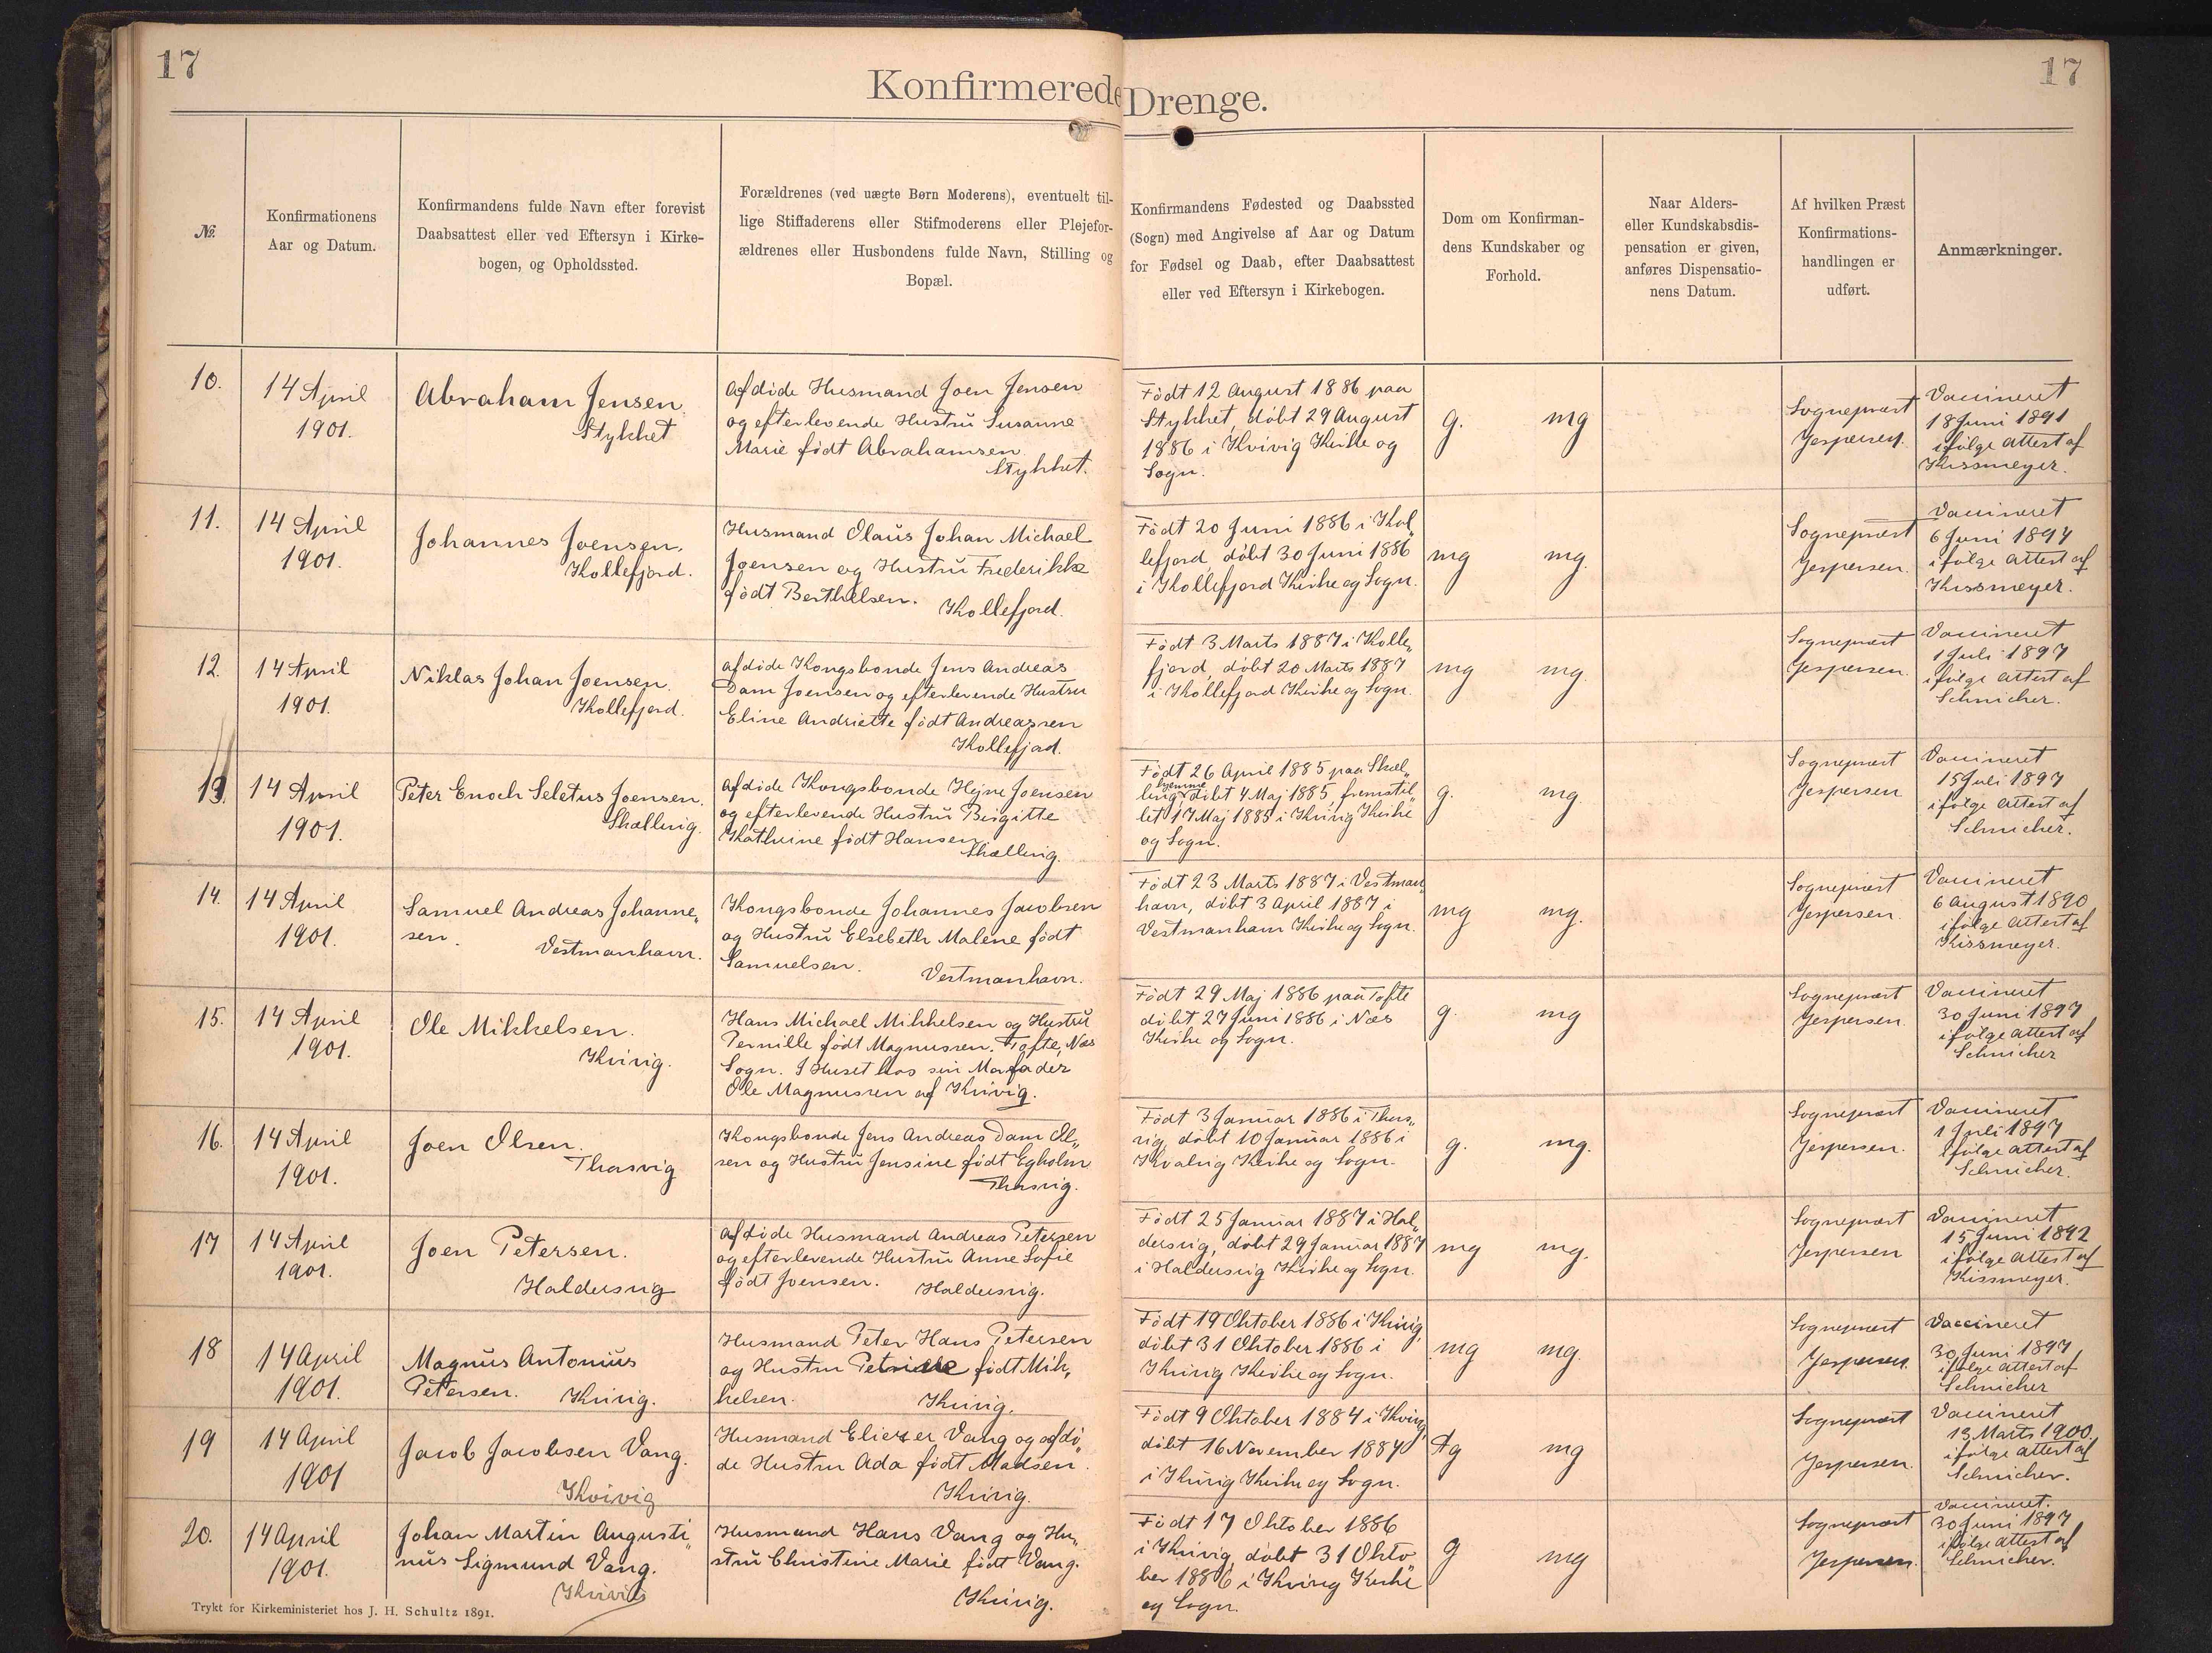 17
17
Konfirmerede Drenge.
№.
Konfirmationens
Aar og Datum.
Konfirmandens fulde Navn efter forevist
Daabsattest eller ved Eftersyn i Kirke-
bogen, og Opholdssted.
Forældrenes (ved uægte Børn Moderens), eventuelt til-
lige Stiffaderens eller Stifmoderens eller Plejefor-
ældrenes eller Husbondens fulde Navn, Stilling og
Bopæl.
Konfirmandens Fødested og Daabssted
(Sogn) med Angivelse af Aar og Datum
for Fødsel og Daab, efter Daabsattest
eller ved Eftersyn i Kirkebogen.
Dom om Konfirman-
dens Kundskaber og
Forhold.
Naar Alders-
eller Kundskabsdis-
pensation er given,
anføres Dispensatio-
nens Datum.
Af hvilken Præst
Konfirmations-
handlingen er
udført.
Anmærkninger.
10.
14 April
1901.
Abraham Jensen
Stykket
Afdöde Husmand Joen Jensen
og efterlevende Hustrü Susanne
Marie födt Abrahamsen
Stykket.
Födt 12 August 1886 paa
Stykket, döbt 29 August
1886 i Kvivig Kirke og
Sogn.
g. mg
Sognepræst
Jespersen.
Vaccineret
18 Juni 1891
ifölge attest af
Kissmeyer.
11.
14 April
1901.
Johannes Joensen.
Kollefjord.
Husmand Olaüs Johan Michael
Joensen og Hustrü Frederikke
födt Berthelsen.
Kollefjord.
Födt 20 Juni 1886 i Kol„
lefjord, döbt 30 Juni 1886
i Kollefjord Kirke og Sogn.
mg mg.
Sognepræst
Jespersen.
Vaccineret
6 Juni 1894
ifölge attest af
Kissmeyer.
12.
14 April
1901.
Niklas Johan Joensen.
Kollefjord.
Afdöde Kongsbonde Jens Andreas
Dam Joensen og efterlevende Hustru
Eline Andriette födt Andreassen
Kollefjord.
Födt 3 Marts 1887 i Kolle„
fjord, döbt 20 Marts 1887
i Kollefjord Kirke og Sogn.
mg mg.
Sognepræst
Jespersen.
Vaccineret
1 Juli 1897
ifölge attest af
Schnicher.
13.
14 April
1901.
Peter Enoch Seletus Joensen.
Skælling.
Afdöde Kongsbonde Hejne Joensen
og efterlevende Hustrü Birgitte
Kathrine födt Hansen
Skælling.
Födt 26 April 1885 paa Skæl„
ling hjemme döbt 4 Maj 1885, fremstil„
let 17 Maj 1885 i Kvivig Kirke
og Sogn.
g. mg.
Sognepræst
Jespersen
Vaccineret
15 Juli 1897
ifölge attest af
Schnicher.
14.
14 April
1901.
Samuel Andreas Johanne„
sen.
Vestmanhavn.
Kongsbonde Johannes Jacobsen
og Hustrü Elsebeth Malene födt
Samuelsen.
Vestmanhavn.
Födt 23 Marts 1887 i Vestman„
havn, döbt 3 April 1887 i
Vestmanhavn Kirke og Sogn.
mg mg.
Sognepræst
Jespersen.
Vaccineret
6 August 1890
ifölge attest af
Kissmeyer.
15.
14 April
1901.
Ole Mikkelsen.
Kvivig.
Hans Michael Mikkelsen og Hustrü
Pernille födt Magnussen. Tofte, Næs
Sogn. I Huset hos sin Morfader
Ole Magnussen af Kvivig.
Födt 29 Maj 1886 paa Tofte
döbt 27 Juni 1886 i Næs
Kirke og Sogn.
g. mg
Sognepræst
Jespersen.
Vaccineret
30 Juni 1897
ifölge attest af
Schnicher
16.
14 April
1901.
Joen Olsen.
Thorsvig
Kongsbonde Jens Andreas Dam Ol„
sen og Hustrü Jensine födt Egholm
Thorsvig.
Födt 3 Januar 1886 i Thors„
vig, döbt 10 Januar 1886 i
Kvalvig Kirke og Sogn.
g. mg.
Sognepræst
Jespersen.
Vaccineret
1 Juli 1897
ifölge attest af
Schnicher.
17
14 April
1901.
Joen Petersen.
Haldersvig
Afdöde Husmand Andreas Petersen
og efterlevende Hustrü Anne Sofie
födt Joensen.
Haldersvig.
Födt 25 Januar 1887 i Hal„
dersvig, döbt 29 Januar 1887
i Haldersvig Kirke og Sogn.
mg mg.
Sognepræst
Jespersen
Vaccineret
15 Juni 1892
ifölge attest af
Kissmeyer.
18
14 April
1901.
Magnüs Antoniüs
Petersen. Kvivig.
Husmand Peter Hans Petersen
og Hustru födt Mik„
kelsen.
Kvivig.
Födt 19 Oktober 1886 i Kvivig,
döbt 31 Oktober 1886 i
Kvivig Kirke og Sogn.
mg mg.
Sognepræst
Jespersen.
Vaccineret
30 Juni 1897
ifölge attest af
Schnicher
19
14 April
1901
Jacob Jacobsen Vang.
Kvivig
Husmand Eliezer Vang og afdö„
de Hustru Ada födt Madsen.
Kvivig.
Födt 9 Oktober 1884 i Kvivig,
döbt 16 November 1884
i Kvivig Kirke og Sogn.
tg mg
Sognepræst
Jespersen.
Vaccineret
13 Marts 1900.
ifölge attest af
Schnicher.
20.
14 April
1901.
Johan Martin Augusti„
nüs Sigmund Vang.
Kvivig
Husmand Hans Vang og Hu„
strü Christine Marie födt Vang.
Kvivig.
Födt 17 Oktober 1886
i Kvivig, döbt 31 Okto„
ber 1886 i Kvivig Kirke
og Sogn.
g mg
Sognepræst
Jespersen.
Vaccineret.
30 Juni 1897
ifölge attest af
Schnicher.
Trykt for Kirkeministeriet hos J. H. Schultz 1891.